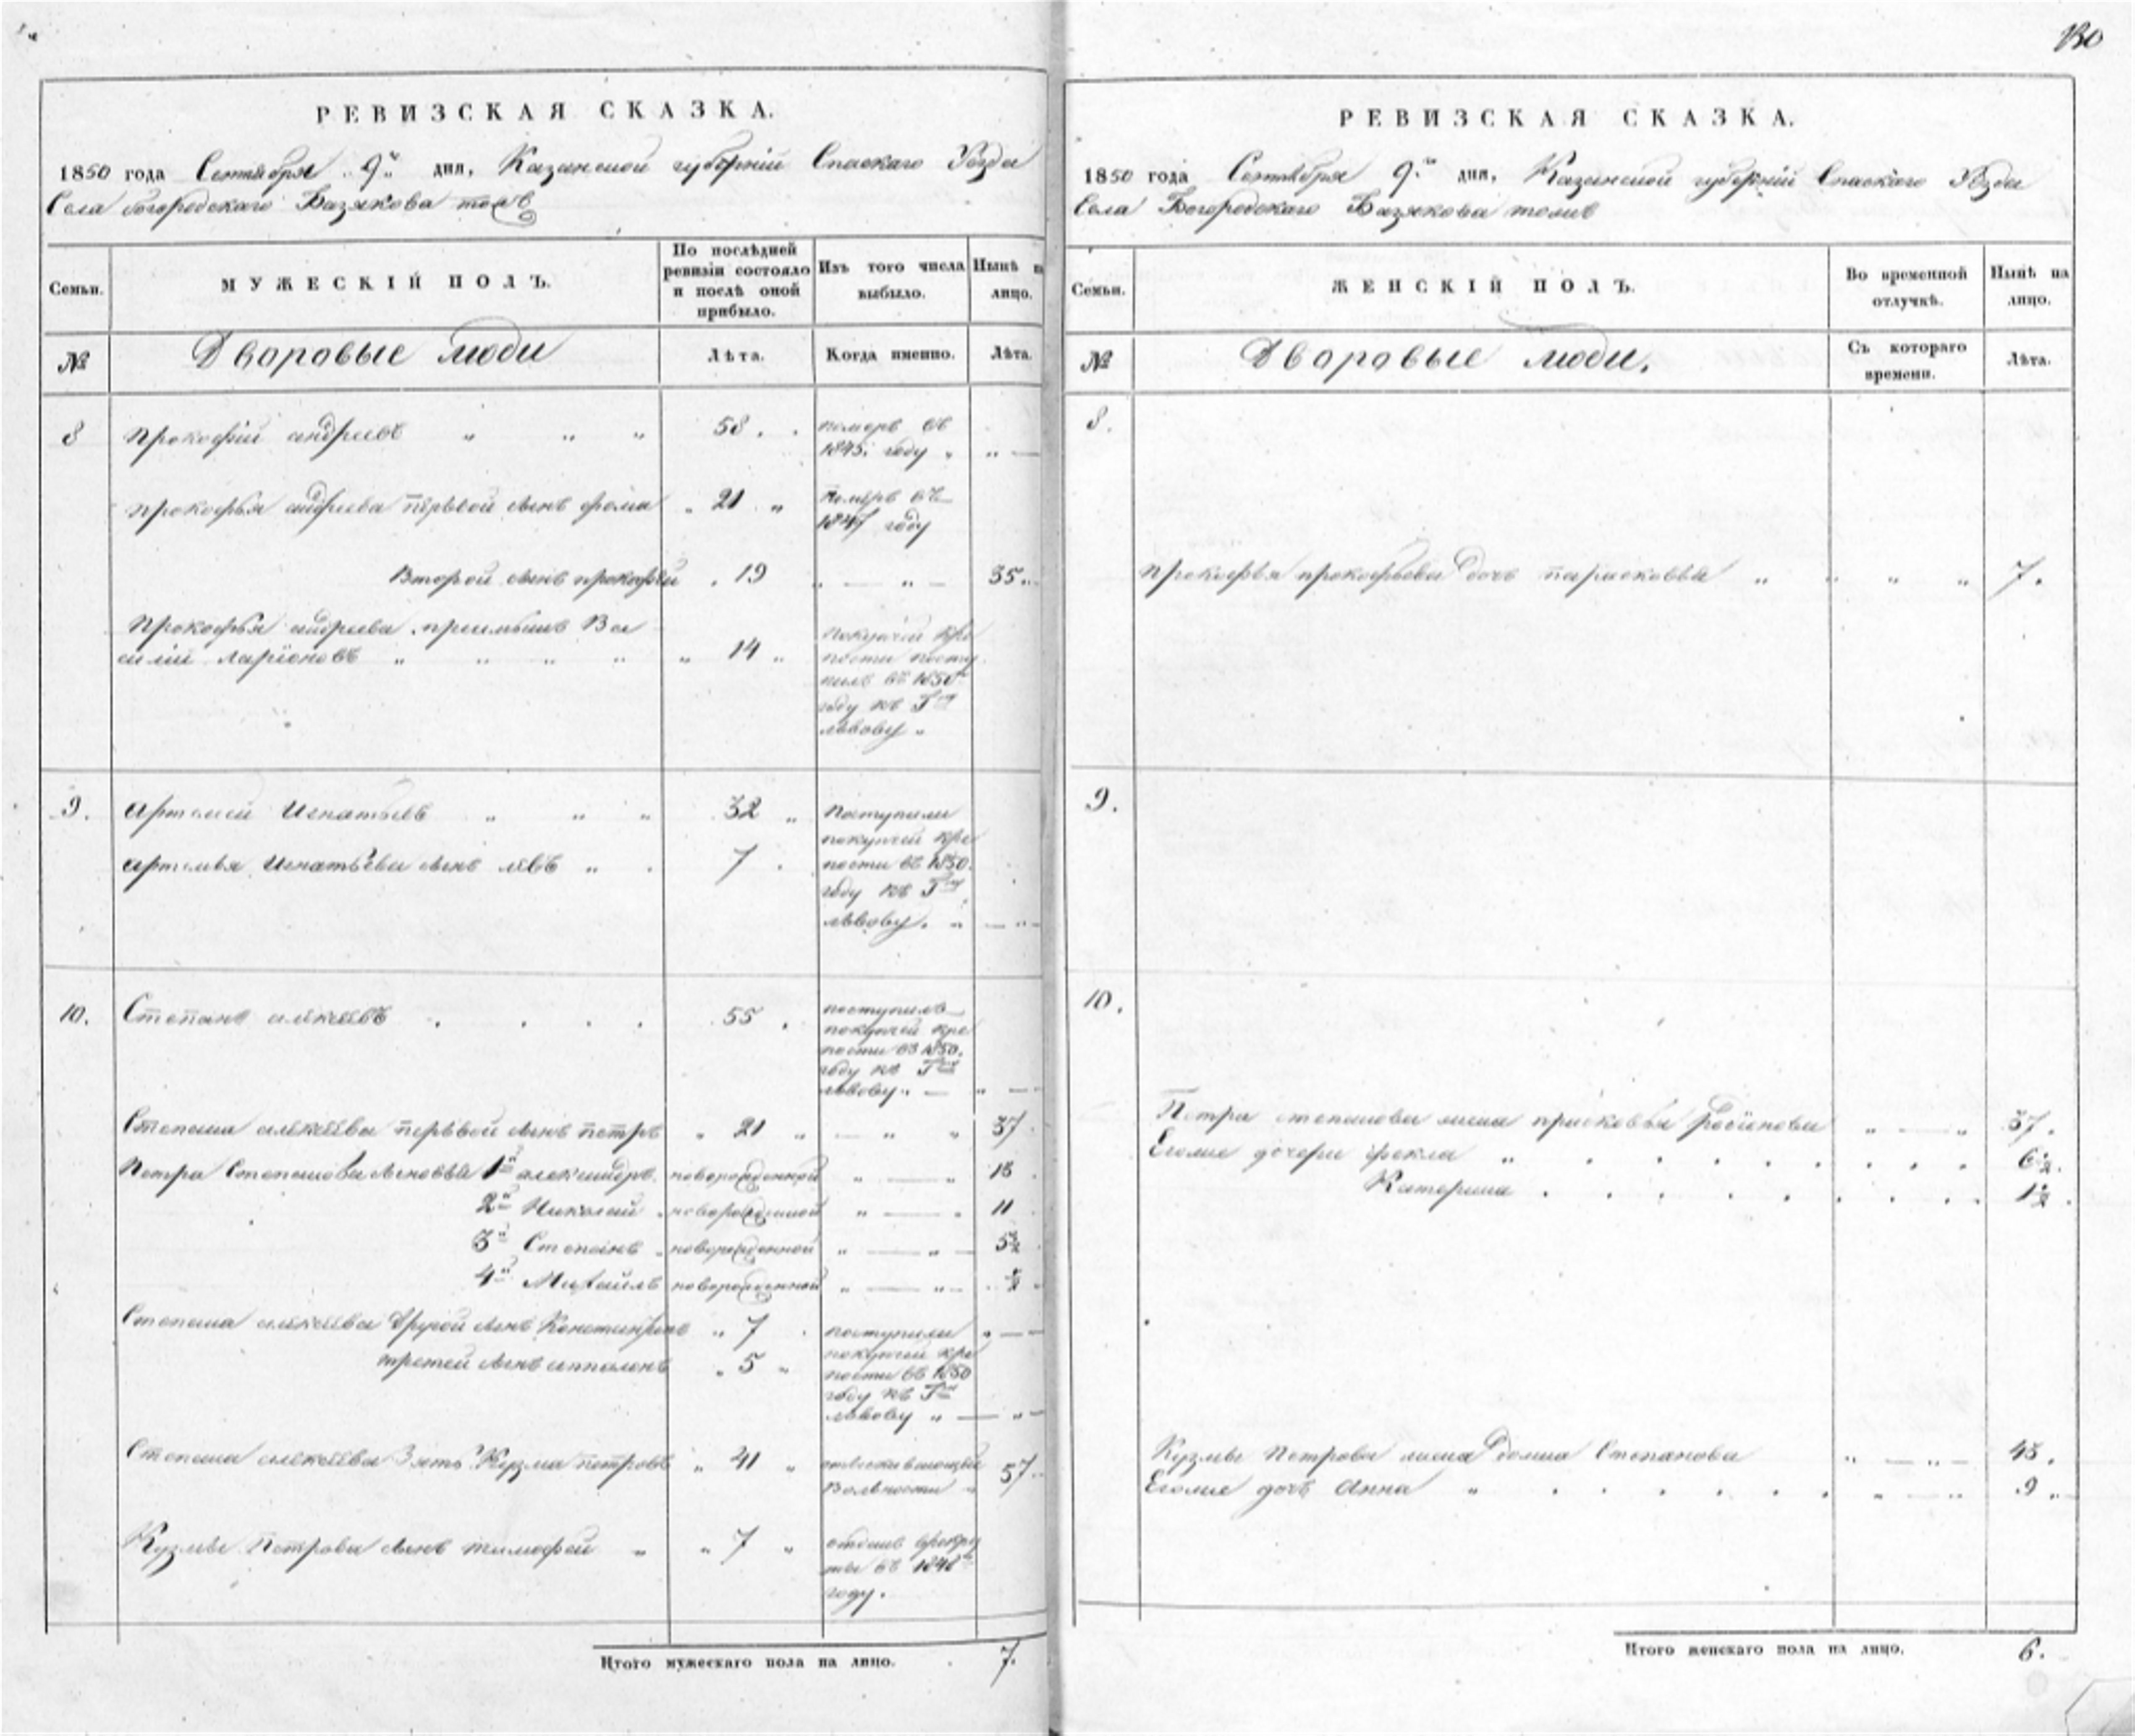 130
РЕВИЗСКАЯ СКАЗКА.
1850 года Сентября 9го дня, Казанской губерніи Спаскаго Уѣзда
Села богородскаго Базякова тожъ
Семьи.
МУЖЕСКІЙ ПОЛЪ.
По послѣдней ревизіи состояло и послѣ оной прибыло.
Изъ того числа выбыло.
Нынѣ на лицо.
№
Дворовые люди
Лѣта.
Когда именно.
Лѣта.
8 Прокофій андреевъ " " " 58. померъ въ 1845 году "
Прокофья андреева первой сынъ фома " 21 " померъ въ 1847 году
Второй сынъ прокофей " 19 " — " — 35
Прокофья андреева преемышъ Ва
силій ларіоновъ " " " " " 14 "
покупчей кре
пости посту
пилъ въ 1850
году къ Гну
львову "
9. Артемей Игнатьевъ " " " 32 "
Артемья Игнатьева сынъ левъ " 7
Поступили
покупчей кре
пости въ 1850
году къ Гну
львову. " — " —
10. Степанъ алексеевъ 55
поступилъ
покупчей кре
пости въ 1850.
году къ Гну
львову " —
Степана алексеева первой сынъ петръ " 21 " — " " 37
Петра Степанова сыновья 1й александръ новорожденной " — " 18
2й Николай новорожденной " — " 11
3й Степанъ новорожденной " — " 5½
4й Михайлъ новорожденной " — " ½
Степана алексеева Другой сынъ Константинъ " 7
третей сынъ апполонъ " 5 "
поступили
покупчей кре
пости въ 1850
году къ Гну
львову " — " —
Степана алексеева Зять Кузма петровъ " 41 " отыскивающій Вольности 57
Кузмы Петрова сынъ тимофей " " 7 " отданъ врекру
ты въ 1848
году.
Итого мужескаго пола на лицо. 7.
РЕВИЗСКАЯ СКАЗКА.
1850 года Сентября 9го дня, Казанской губерніи Спаскаго Уѣзда
Села Богородскаго Базякова тожъ
Семьи.
ЖЕНСКІЙ ПОЛЪ.
Во временной отлучкѣ.
Нынѣ на лицо.
№
Дворовые люди.
Съ котораго времени.
Лѣта.
8.
Прокофья прокофьева дочь парасковья " " " " 7.
9.
10.
Петра степанова жена прасковья родіонова " — " 37.
Еголие дочери фекла " 6½.
Катерина 1½
Кузмы Петрова жена домна Степанова " — " — 48.
Еголие дочь Анна " " — " 9
Итого женскаго пола на лицо. 6.